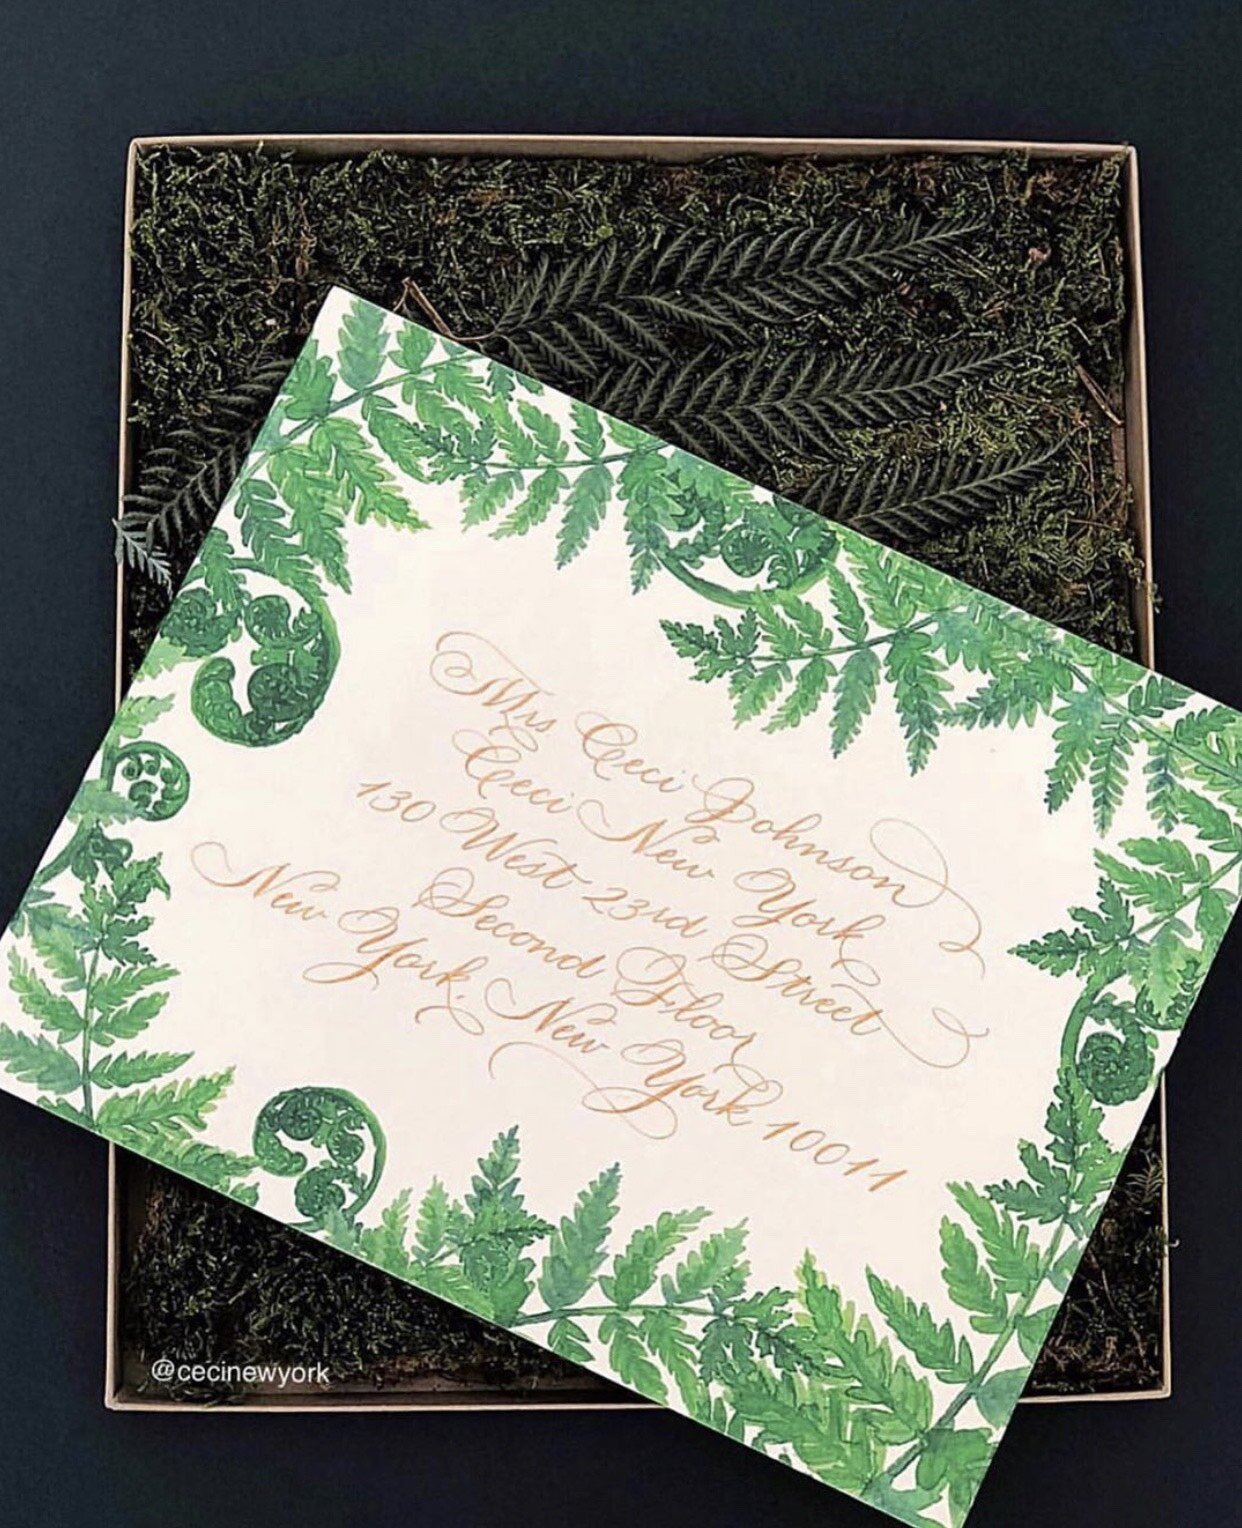 Mrs Ceci Johnson
Ceci New York
130 West 23rd Street
Second Floor
New York, New York 10011
@cecinewyork